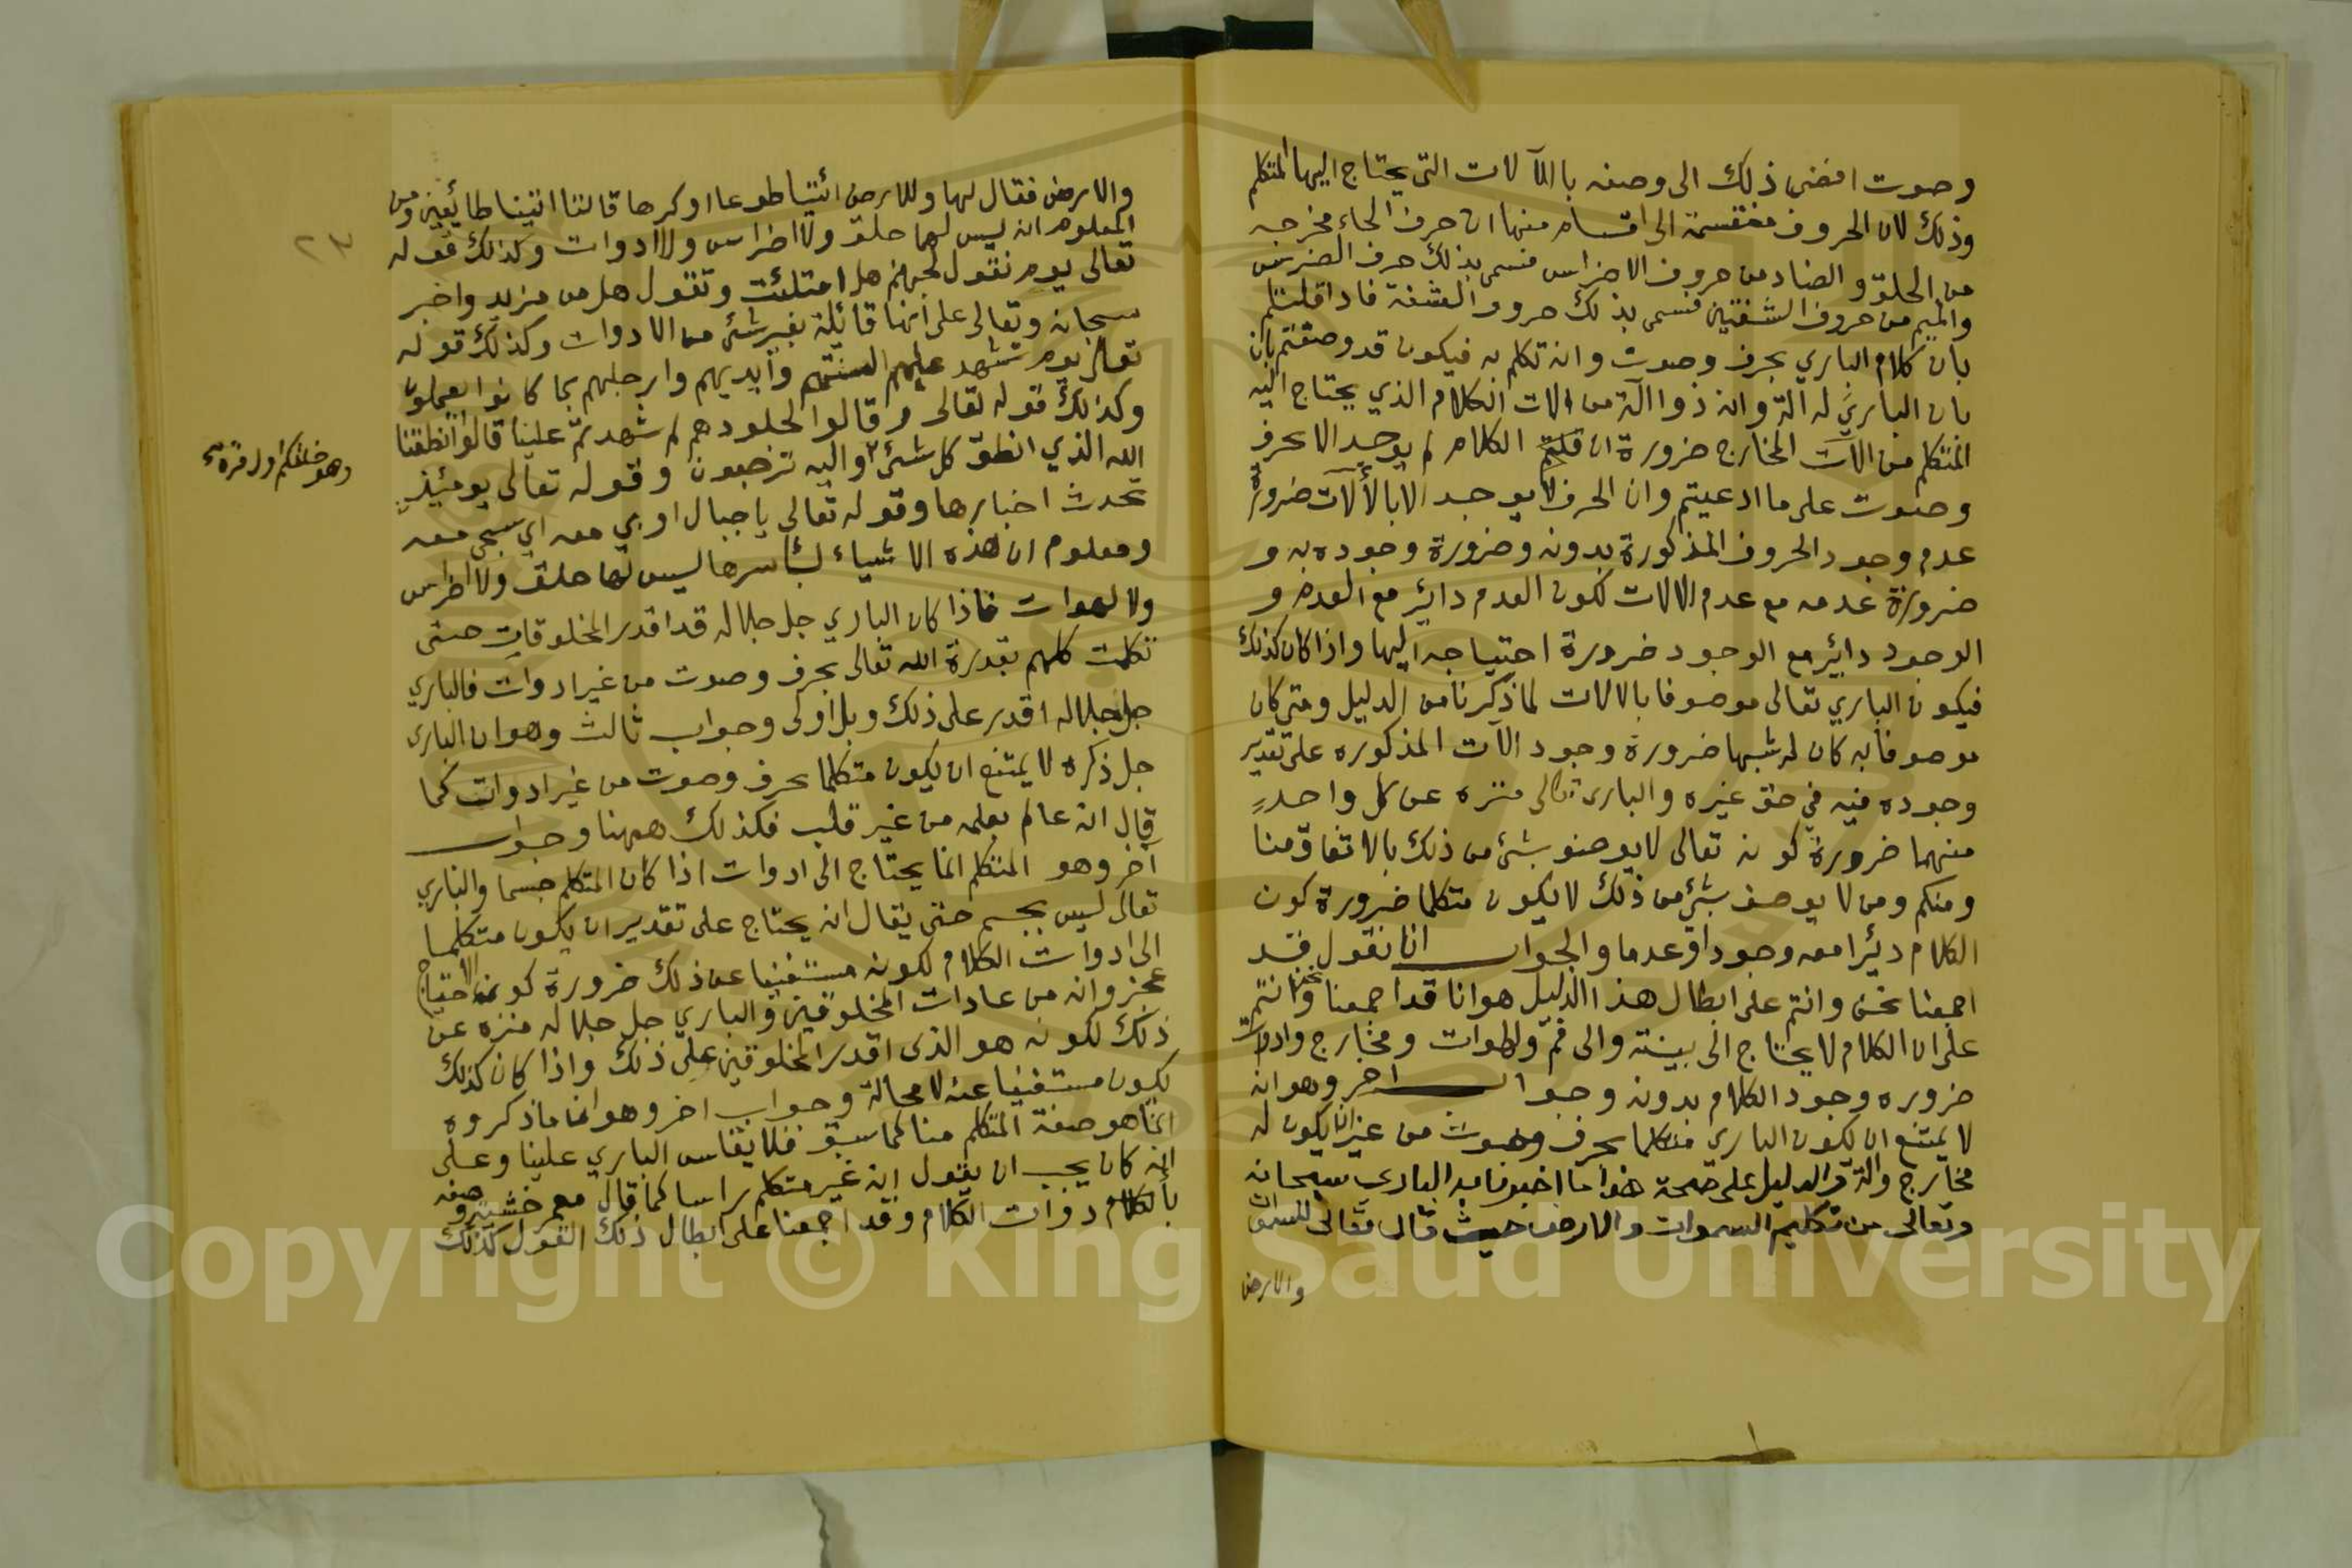 وصوت افضى ذلك الى وصفه باالآلات التى يحتاج اليها المتكلم
وذلك لان الحروف منقسمة الى اقسام منها ان حرف الحاء مخرجه
من الحلق والضاد من حروف الاضراس فسمى بذلك حرف الضرس
والميم من حروف الشفتين فسمى بذلك حروف الشفة فاذا قلتم
بان كلام الباري بحرف وصوت وانه تكلم به فيكون قد وصفتم بان
بان الباري له آلة وانه ذوا آلة من الات الكلام الذي يحتاج اليه
المتكلم من الآت المخارج ضرورة ان قلتم الكلام لم يوجد الا بحرف
وصوت على ما ادعيتم وان الحرف لا يوجد الا بالألآت ضرورة
عدم وجود الحروف المذكورة بدونه وضرورة وجوده به و
ضرورة عدمه مع عدم الالات لكون العدم دائر مع العدم و
الوجود دائر مع الوجود ضرورة احتياجه اليها واذا كان كذلك
فيكون الباري تعالى موصوفا بالالات لما ذكرنا من الدليل ومتى كان
موصوفا به كان له شبها ضرورة وجود الآت المذكوره على تقدير
وجوده فيه في حق غيره والبارى تعالى منزه عن كل واحدٍ
منهما ضرورة كونه تعالى لا يوصف بشئ من ذلك بالاتفاق منا
ومنكم ومن لا يوصف بشئ من ذلك لا يكون متكلما ضرورة كون
الكلام دئرا معه وجودا وعدما والجواب انا نقول قد
اجمعنا نحن وانتم على ابطال هذا الدليل هو انا قد اجمعنا نحن وانتم
على ان الكلام لا يحتاج الى بينة والى فم ولهوات ومخارج وادوات
ضروره وجود الكلام بدونه وجواب اخر وهو انه
لا يمتنع ان يكون الباري متكلما بحرف وصوت من غير ان يكون له
مخارج وآلة والدليل على صحة هذا ما اخبرنا به الباري سبحانه
وتعالى من تكليم السموات والارض حيث قال تعالى للسموات
والارض
والارض فقال لها وللارض ائتيا طوعا او كرها قالتا اتينا طائعين ومن
المعلوم انه ليس لهما حلق ولا اضراس ولا ادوات وكذلك قوله
تعالى يوم نقول لجهنم هل امتلئت وتقول هل من مزيد واخبر
سبحانه وتعالى على انها قائلة بغير شئ من الادوات وكذلك قوله
تعالى يوم تشهد عليهم السنتهم وأيديهم وارجلهم بما كانوا يعملون
وكذلك قوله تعالى وقالوا لجلودهم لم شهدتم علينا قالوا انطقنا
الله الذي انطق كل شئ واليه ترجعون وقوله تعالى يومئذ
وهو خلقكم اول مرة صح
تحدث اخبارها وقوله تعالى يا جبال اوبي معه اي سبحي معه
ومعلوم ان هذه الاشياء بأسرها ليس لها حلق ولا اضراس
ولا لهوات فاذا كان الباري جل جلاله قد اقدر المخلوقات حتى
تكلمت كلهم بقدرة الله تعالى بحرف وصوت من غير ادوات فالباري
جل جلاله اقدر على ذلك وبل اولى وجواب ثالث وهو ان البارى
جل ذكره لا يمتنع ان يكون متكلما بحرف وصوت من غير ادوات كما
قال انه عالم بعلمه من غير قلب فكذلك ههنا وجواب
آخر وهو المتكلم انما يحتاج الى ادوات اذا كان المتكلم جسما والباري
تعالى ليس بجسم حتى يقال انه يحتاج على تقدير ان يكون متكلما
الى ادوات الكلام لكونه مستغنيا عن ذلك ضرورة كون الاحتياج
عجز وانه من عادات المخلوقين والباري جل جلاله منزه عن
ذلك لكونه هو الذى اقدر المخلوقين على ذلك واذا كان كذلك
يكون مستغنيا عنه لا محالة وجواب اخر وهو انما ما ذكروه
انما هو صفة المتكلم منا كما سبق فلا يقاس الباري علينا وعلى
انه كان يجب ان يقول انه غير متكلم راسا كما قال
بالكلام ذوات الكلام وقد اجمعنا على ابطال ذلك القول كذلك
Copyright © King Saud University